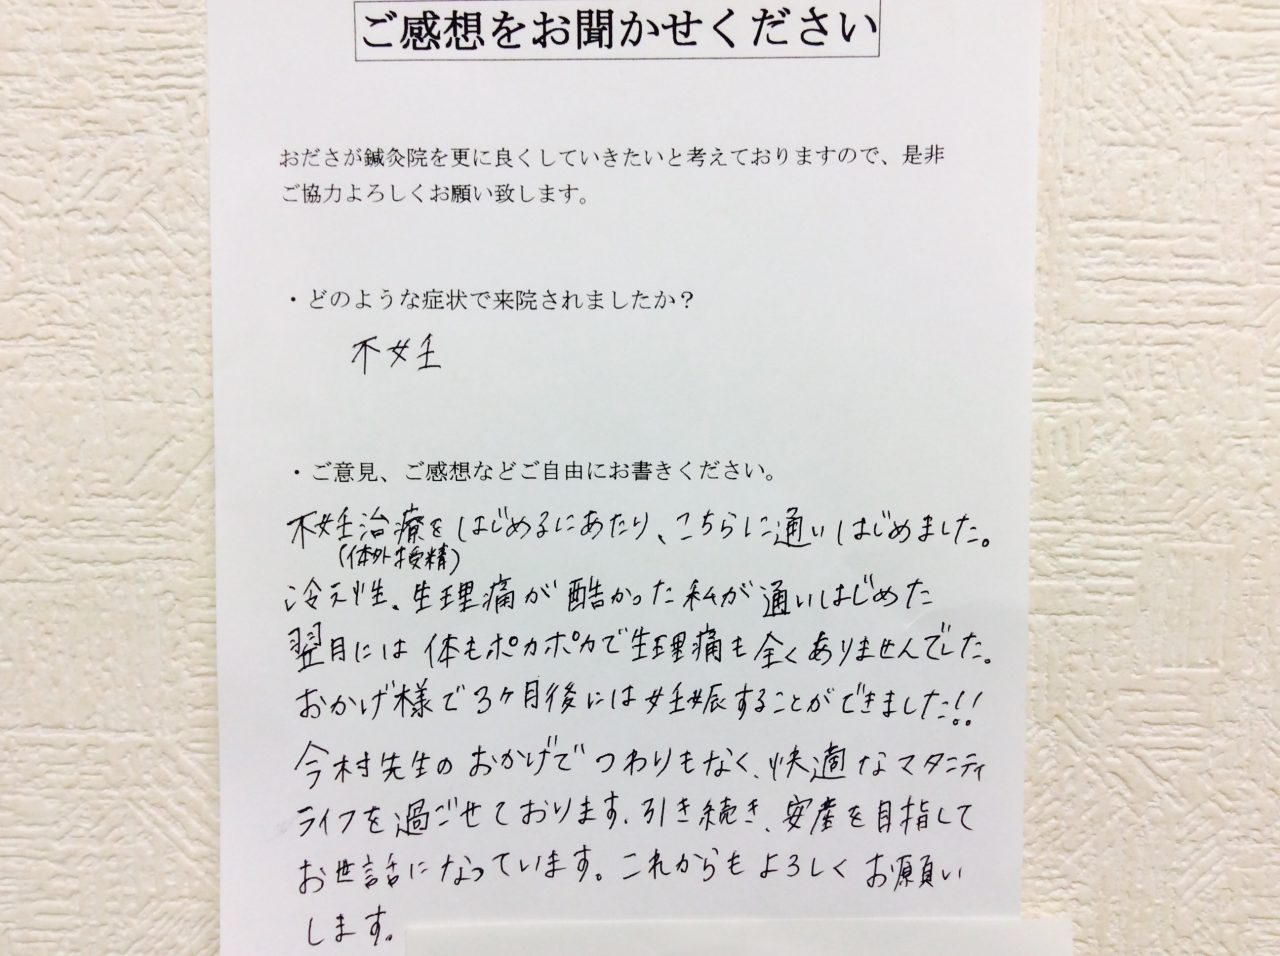 ご感想をお聞かせください
おださが鍼灸院を更に良くしていきたいと考えておりますので、是非
ご協力よろしくお願い致します。
・どのような症状で来院されましたか?
不妊
・ご意見、ご感想などご自由にお書きください。
不妊治療をはじめるにあたり、こちらに通いはじめました。
(体外授精)
冷え性、生理痛が酷かった私が通いはじめた
翌月には体もポカポカで生理痛も全くありませんでした。
おかげ様で3ヶ月後には妊娠することができました!!
今村先生のおかげでつわりもなく、快適なマタニティ
ライフを過ごせております。引き続き、安産を目指して
お世話になっています。これからもよろしくお願い
します。